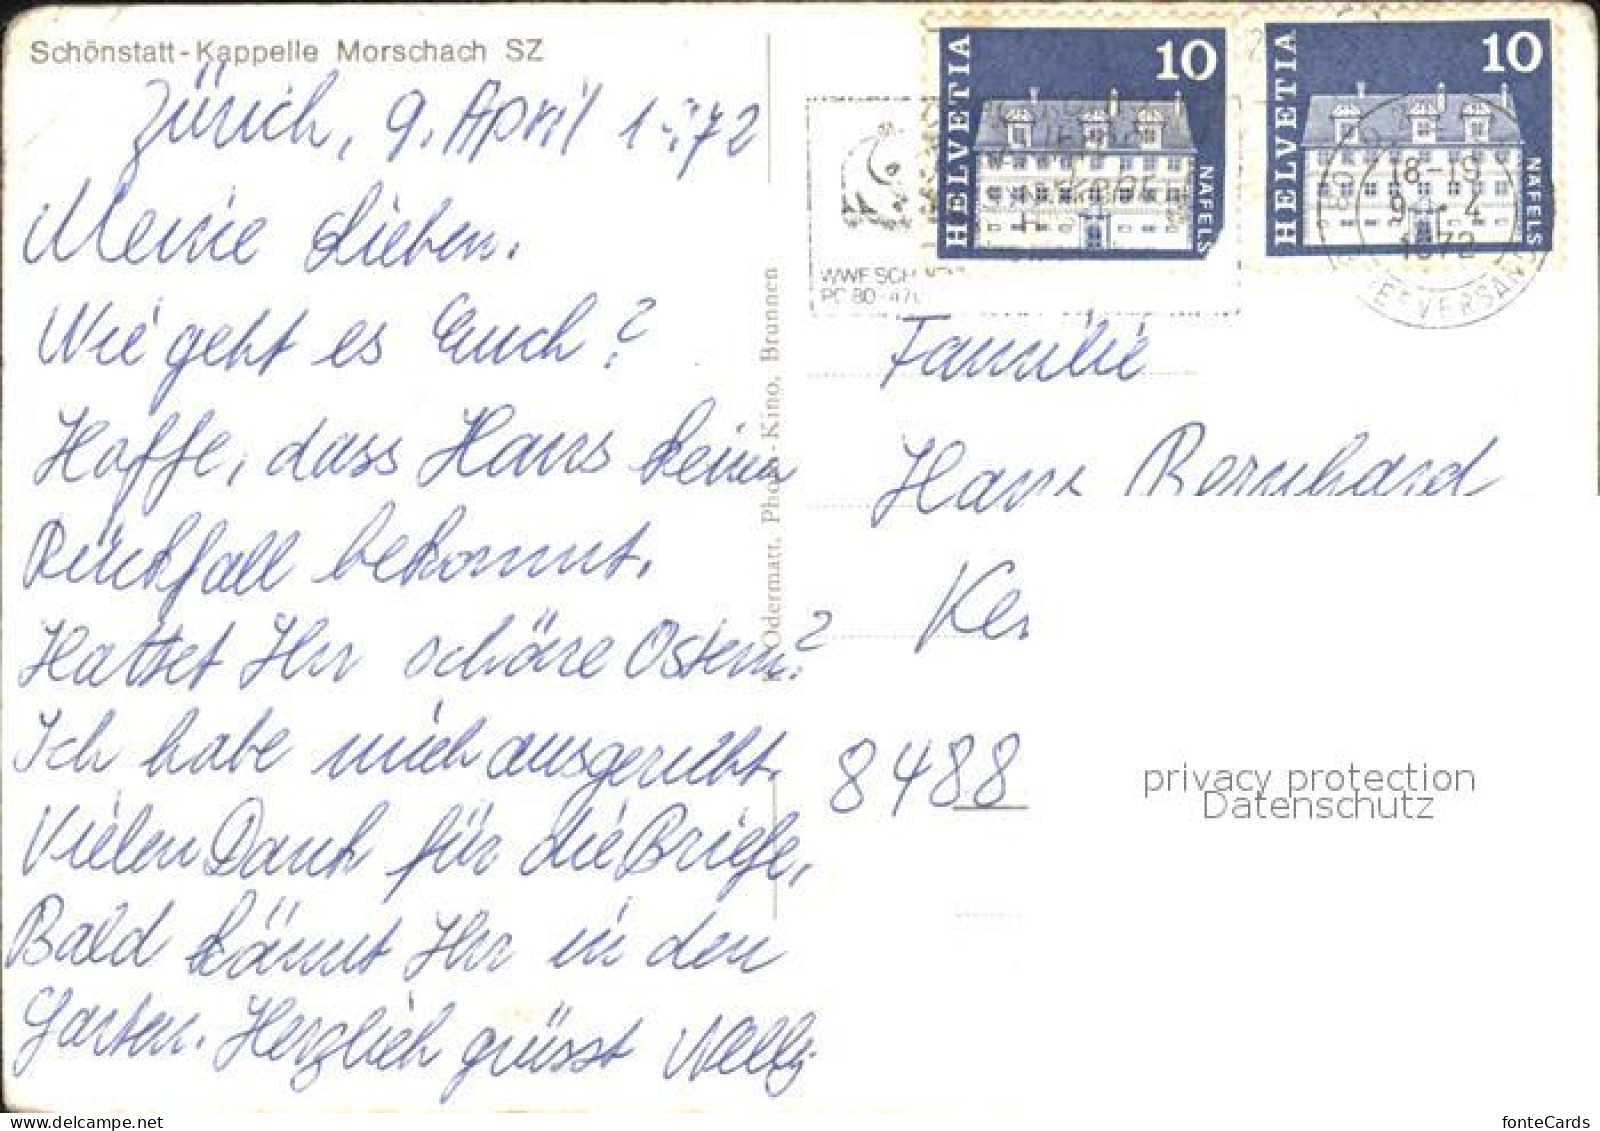 Schönstatt-Kappelle Morschach SZ
Zürich, 9. April 1972
Meine Lieben.
Wie geht es Euch?
Hoffe, dass Hans keinen
Rückfall bekommt.
Hattet Ihr schöne Ostern?
Ich habe mich ausgeruht.
Vielen Dank für die Briefe,
Bald könnt Ihr in den
Garten. Herzlich grüsst Nelly
Odermatt, Photo-Kino, Brunnen
HELVETIA 10 NÄFELS
HELVETIA 10 NÄFELS
WWF SCH
PC 80-47
18-19
9 4
1972
BRIEFVERSAND
Familie
Hans Bernhard
Ke
8488
privacy protection
Datenschutz
fonteCards